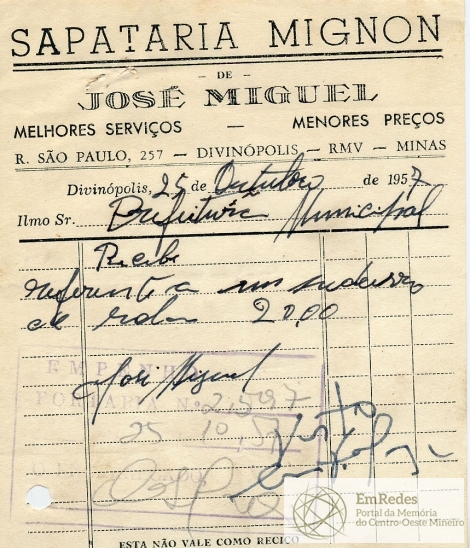 SAPATARIA MIGNON
— DE —
JOSÉ MIGUEL
MELHORES SERVIÇOS — MENORES PREÇOS
R. SÃO PAULO, 257 — DIVINÓPOLIS — RMV — MINAS
Divinópolis, 25 de Outubro de 1957
Ilmo Sr. Prefeitura Municipal
Recibe
referente a um
de 20,00
José Miguel
EMPENHO
PORTARIA Nº 2.597
25 10 57
Visto
ESTA NÃO VALE COMO RECIBO
EmRedes
Portal da Memória
do Centro-Oeste Mineiro